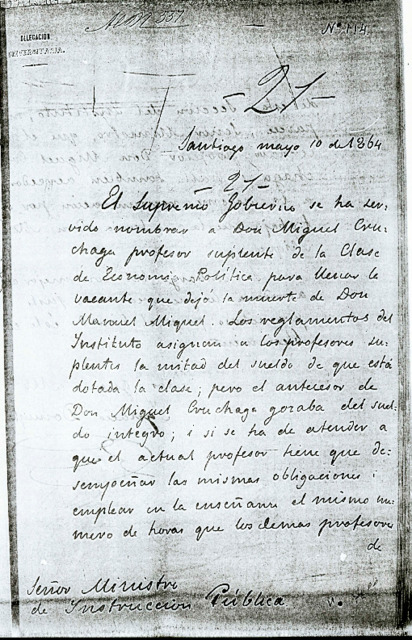 Nº 114
DELEGACION
UNIVERSITARIA.
21
Santiago mayo 10 de 1864
21
El Supremo Gobierno se ha ser-
vido nombrar a Don Miguel Cru-
chaga profesor suplente de la Clase
de Economia Política para llenar la
vacante que dejó la muerte de Don
Manuel Miquel. Los reglamentos del
Instituto asignan a los profesores su-
plentes la mitad del sueldo de que está
dotada la clase; pero el antecesor de
Don Miguel Cruchaga gozaba del suel-
do integro; i si se ha de atender a
que el actual profesor tiene que de-
sempeñar las mismas obligaciones i
emplear en la enseñanza el mismo nú-
mero de horas que los demas profesores
de
Señor Ministro
de Instruccion Pública